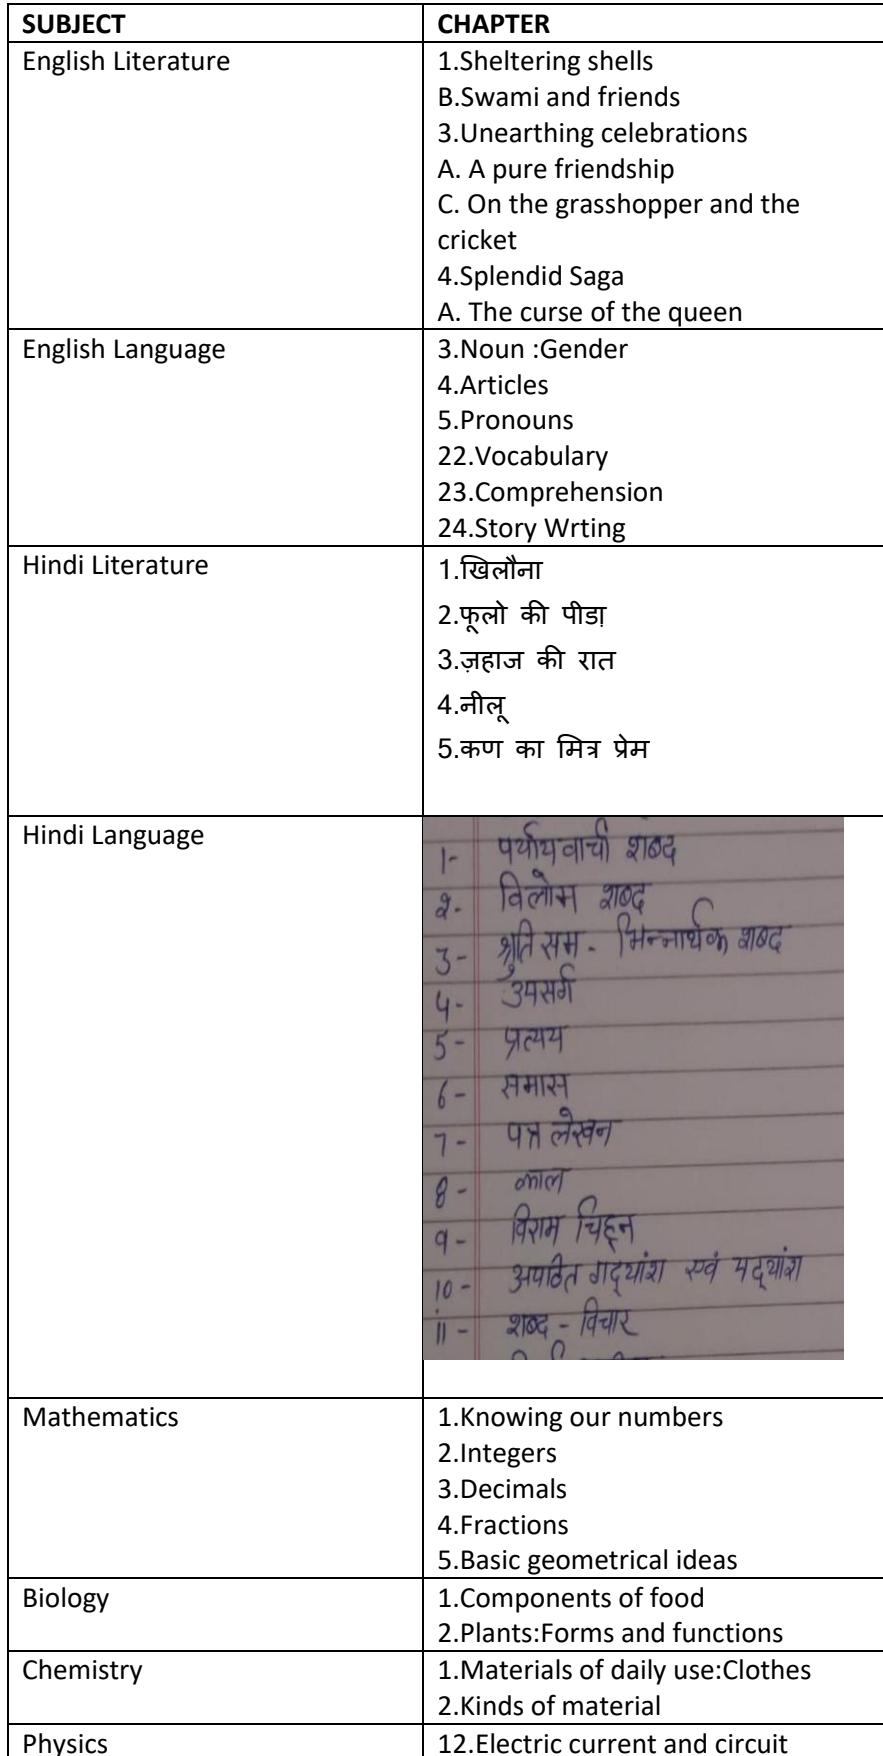 SUBJECT CHAPTER
English Literature 1.Sheltering shells
B.Swami and friends
3.Unearthing celebrations
A. A pure friendship
C. On the grasshopper and the
cricket
4.Splendid Saga
A. The curse of the queen
English Language 3.Noun :Gender
4.Articles
5.Pronouns
22.Vocabulary
23.Comprehension
24.Story Wrting
Hindi Literature 1.खिलौना
2.फूलो की पीडा़
3.ज़हाज की रात
4.नीलू
5.कण का मित्र प्रेम
Hindi Language
1- पर्यायवाची शब्द
2- विलोम शब्द
3- श्रुति सम - भिन्नार्थक शब्द
4- उपसर्ग
5- प्रत्यय
6- समास
7- पत्र लेखन
8- काल
9- विराम चिह्न
10- अपठित गद्यांश एवं पद्यांश
11- शब्द - विचार
Mathematics 1.Knowing our numbers
2.Integers
3.Decimals
4.Fractions
5.Basic geometrical ideas
Biology 1.Components of food
2.Plants:Forms and functions
Chemistry 1.Materials of daily use:Clothes
2.Kinds of material
Physics 12.Electric current and circuit